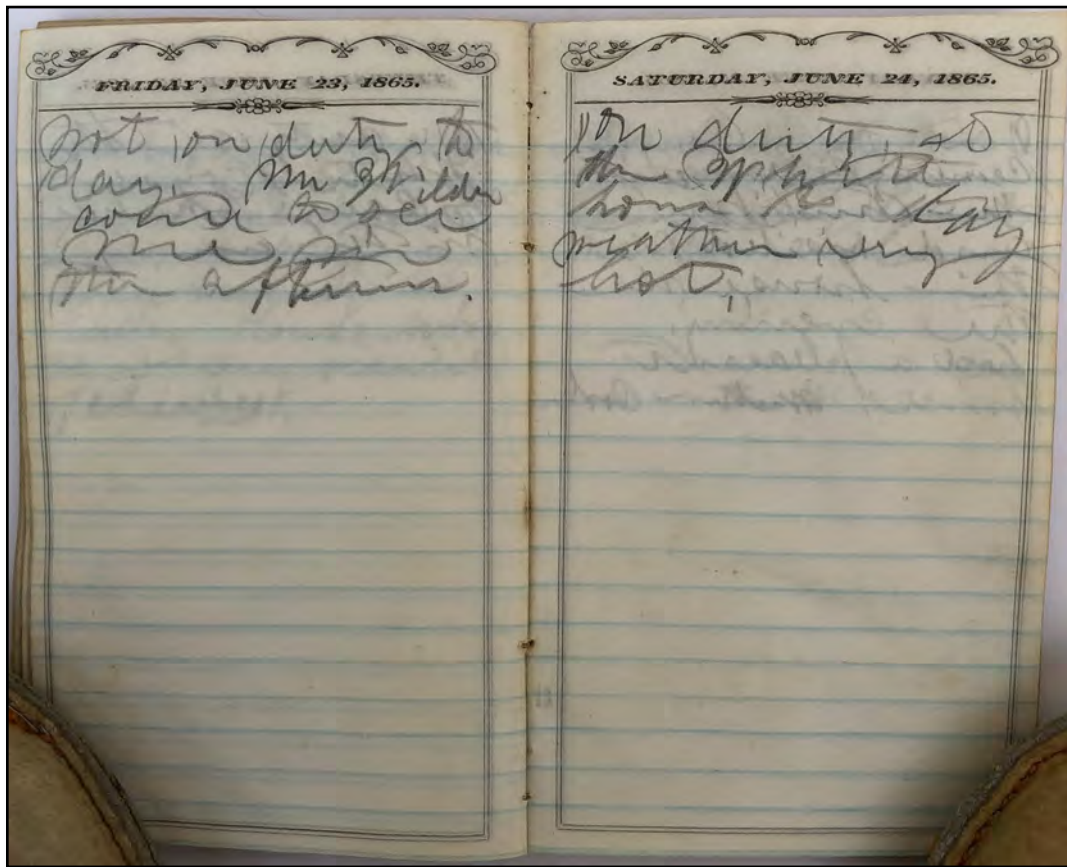 FRIDAY, JUNE 23, 1865.
not on duty to
day. Mr
came to see
me in
the afternoon.
SATURDAY, JUNE 24, 1865.
on duty at
the
to day
weather very
hot,